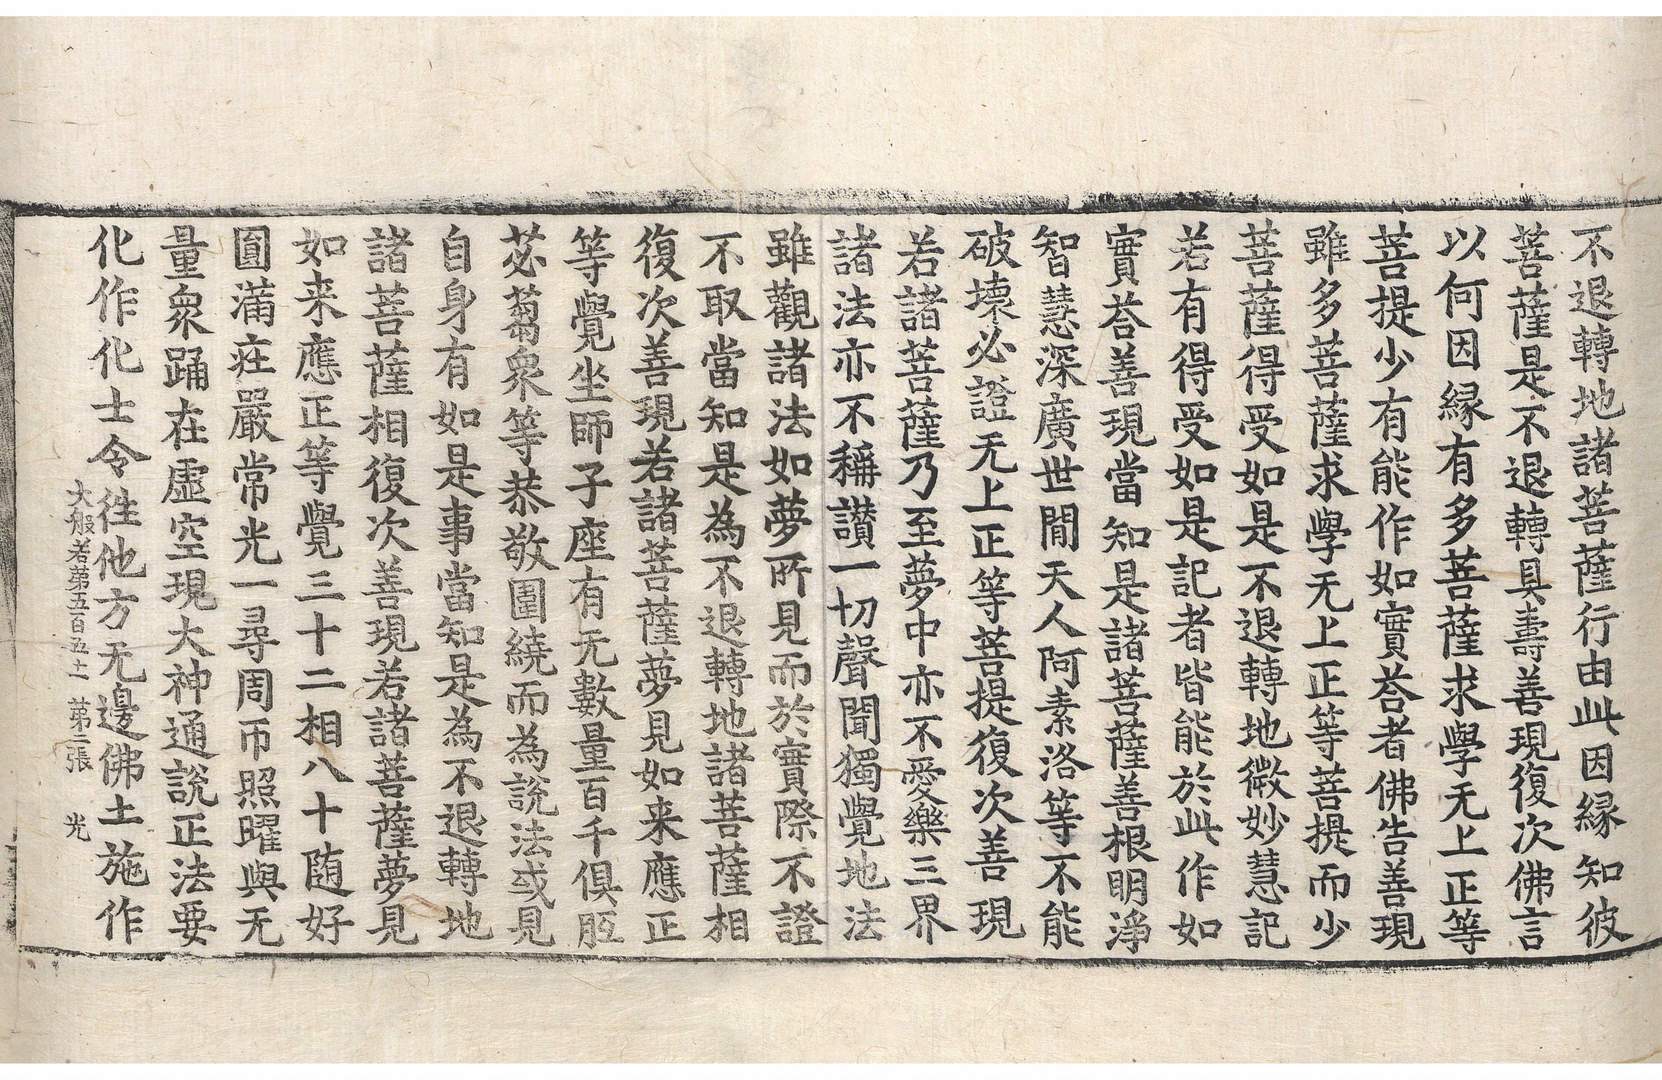 不退轉地諸菩薩行由此因縁知彼
菩薩是不退轉具壽善現復次佛言
以何因縁有多菩薩求學无上正等
菩提少有能作如實荅者佛告善現
雖多菩薩求學无上正等菩提而少
菩薩得受如是不退轉地微妙慧記
若有得受如是記者皆能於此作如
實荅善現當知是諸菩薩善根明淨
智慧深廣世間天人阿素洛等不能
破壞必證无上正等菩提復次善現
若諸菩薩乃至夢中亦不愛樂三界
諸法亦不稱讚一切聲聞獨覺地法
雖觀諸法如夢所見而於實際不證
不取當知是為不退轉地諸菩薩相
復次善現若諸菩薩夢見如来應正
等覺坐師子座有无數量百千俱胝
苾蒭衆等恭敬圍繞而為說法或見
自身有如是事當知是為不退轉地
諸菩薩相復次善現若諸菩薩夢見
如来應正等覺三十二相八十随好
圓滿莊嚴常光一尋周帀照曜與无
量衆踊在虛空現大神通說正法要
化作化士令往他方无邊佛土施作
大般若第五百五十一 第三張 光